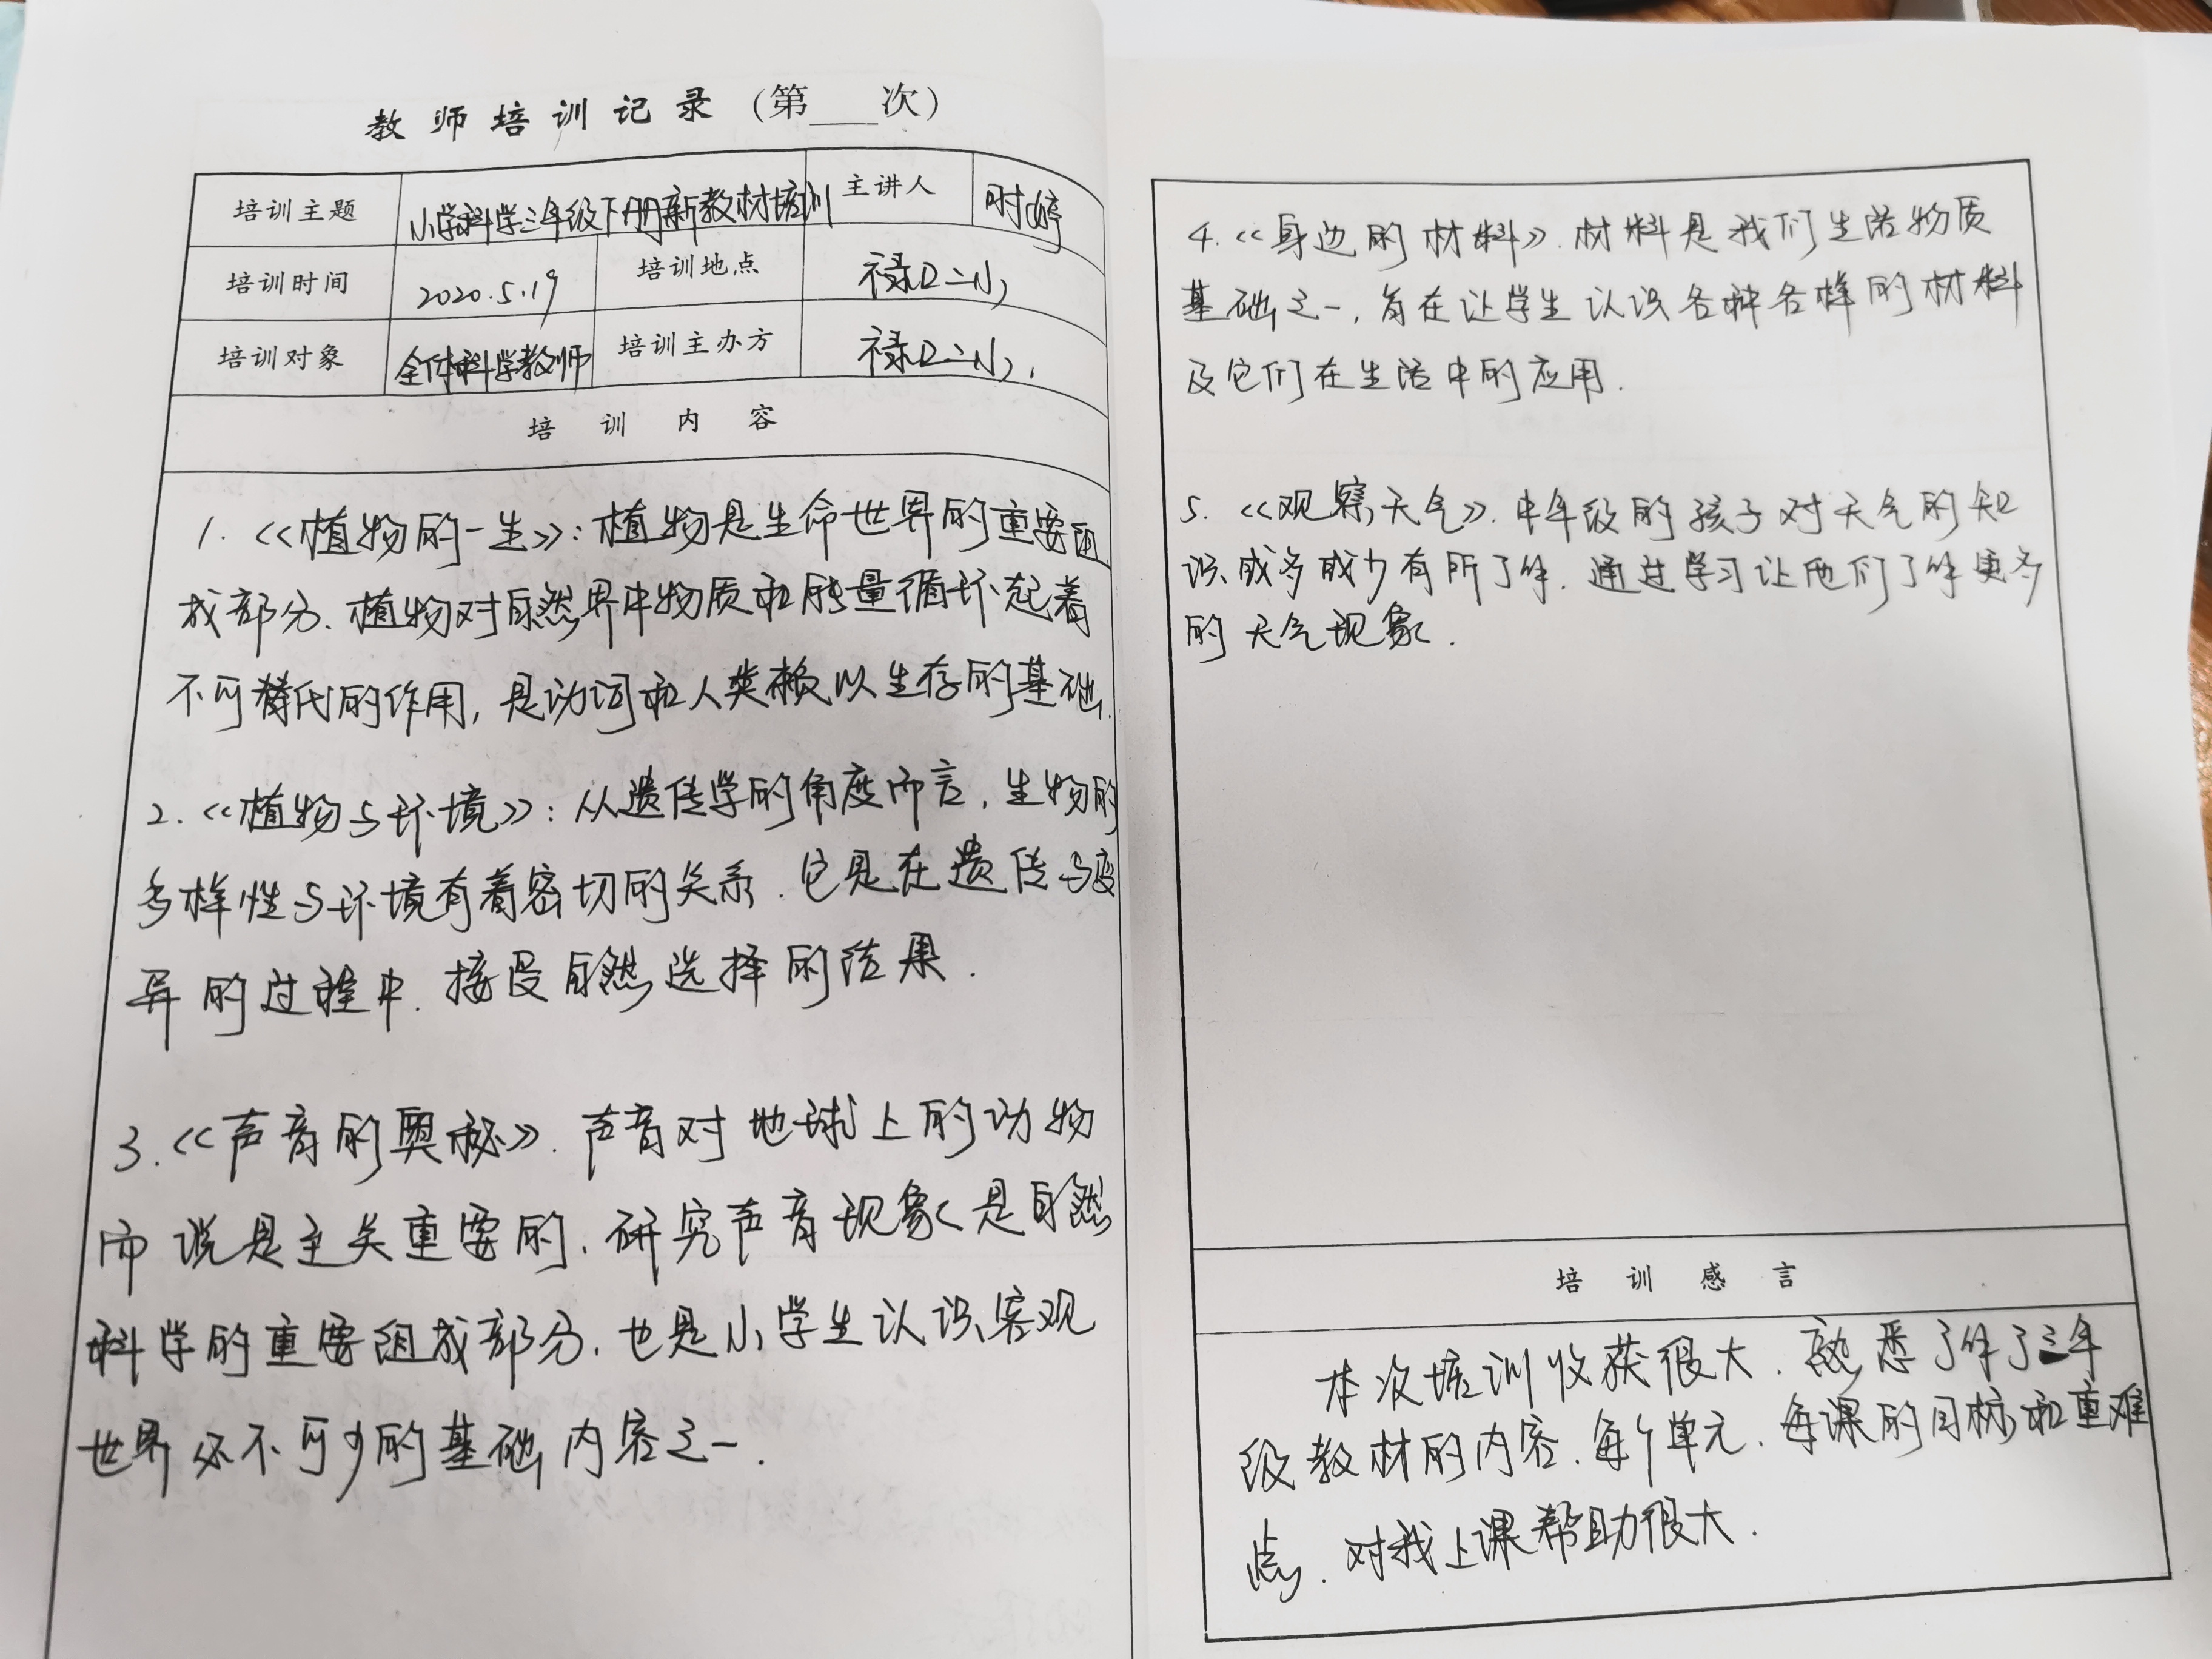 教师培训记录(第___次)
培训主题 小学科学三年级下册新教材培训 主讲人 时婷
培训时间 2020.5.19 培训地点 禄口二小
培训对象 全体科学教师 培训主办方 禄口二小.
培训内容
1.《植物的一生》:植物是生命世界的重要组
成部分.植物对自然界中物质和能量循环起着
不可替代的作用,是动词和人类赖以生存的基础.
2.《植物与环境》:从遗传学的角度而言,生物的
多样性与环境有着密切的关系.它是在遗传与变
异的过程中.接受自然选择的结果.
3.《声音的奥秘》.声音对地球上的动物
而说是至关重要的.研究声音现象是自然
科学的重要组成部分.也是小学生认识客观
世界必不可少的基础内容之一.
4.《身边的材料》.材料是我们生活物质
基础之一,旨在让学生认识各种各样的材料
及它们在生活中的应用.
5.《观察天气》.中年级的孩子对天气的知
识或多或少有所了解.通过学习让他们了解更多
的天气现象.
培训感言
本次培训收获很大.熟悉了解了三年
级教材的内容.每个单元.每课的目标和重难
点.对我上课帮助很大.